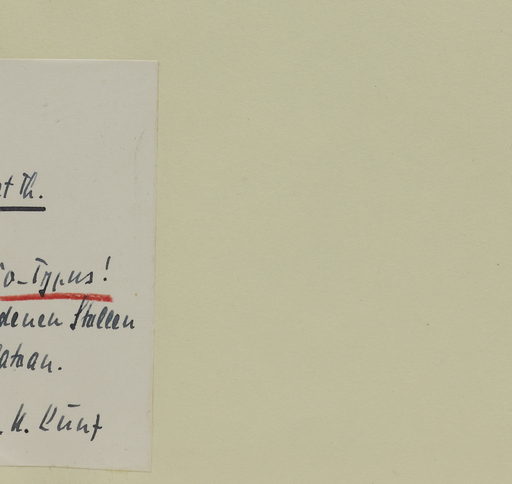 t Th.
o-Typus!
denen Stellen
ataan.
. K.